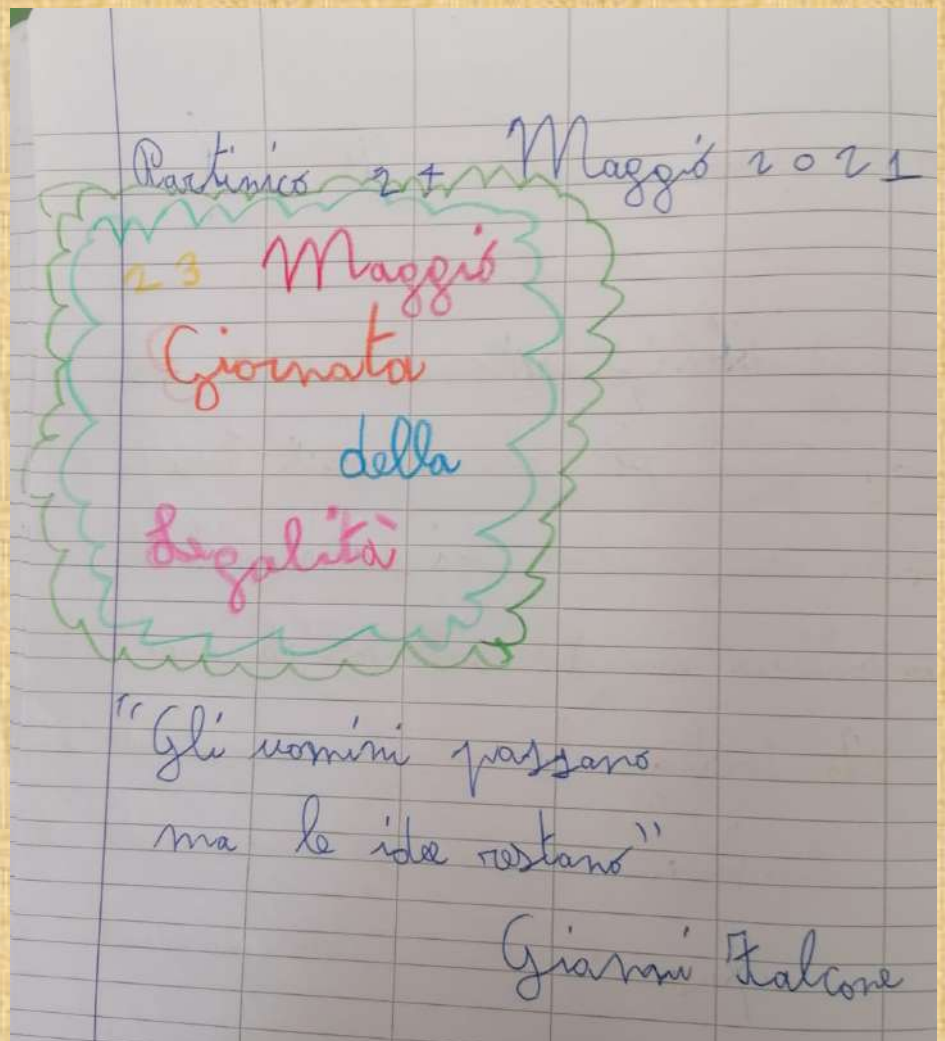 Partinico 21 Maggio 2021
23 Maggio
Giornata
della
Legalità
"Gli uomini passano
ma le idee restano"
Gianni Falcone